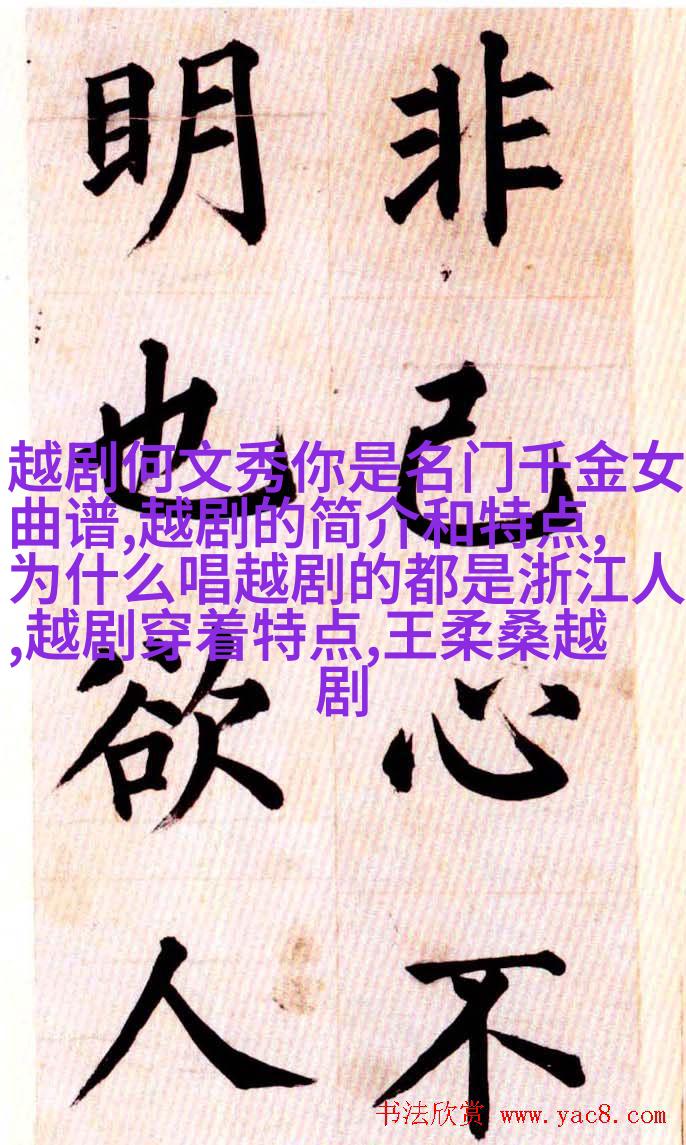 非己心不
明也欲人
越剧何文秀你是名门千金女
曲谱,越剧的简介和特点,
为什么唱越剧的都是浙江人
,越剧穿着特点,王柔桑越
剧
书法欣赏 www.yac8.com